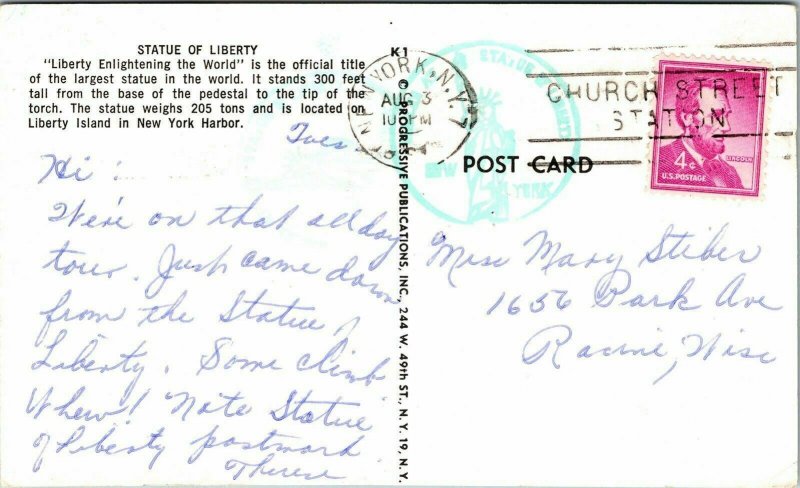 STATUE OF LIBERTY
"Liberty Enlightening the World" is the official title
of the largest statue in the world. It stands 300 feet
tall from the base of the pedestal to the tip of the
torch. The statue weighs 205 tons and is located on
Liberty Island in New York Harbor.
Tues
Hi!
We're on that all day
tour. Just came down
from the Statue of
Liberty. Some climb
Whew! Note Statue
of Liberty postmark
Therese
K1
© PROGRESSIVE PUBLICATIONS, INC., 244 W. 49th ST., N.Y. 19, N.Y.
NEW YORK, N.Y.
AUG 3
10 PM
STATUE OF
NEW YORK
CHURCH STREET
STATION
4¢
LINCOLN
U.S. POSTAGE
POST CARD
Miss Mary Stiber
1656 Park Ave
Racine, Wisc